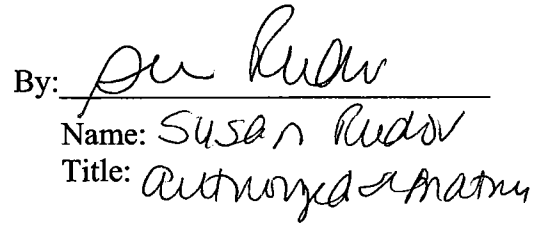 By: Sue Rudov
Name: Susan Rudov
Title: authorized signatory